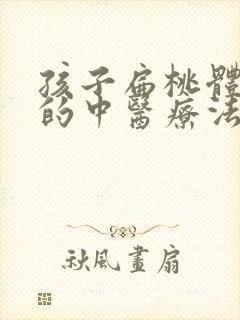 孩子扁桃體
的中醫療法
秋風畫扇